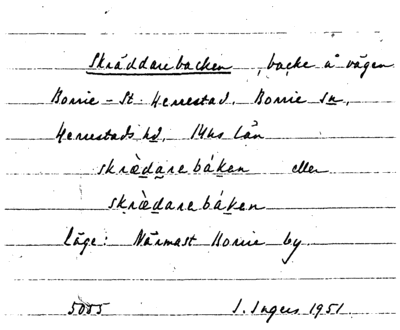 Skräddarebacken, backe å vägen
Borrie – St. Herrestad. Borrie sn,
Herrestads hd, Mhs län
skrὲdarebáken eller
skrὲdarebáken
Läge: Närmast Borrie by
5055 I. Ingers 1951